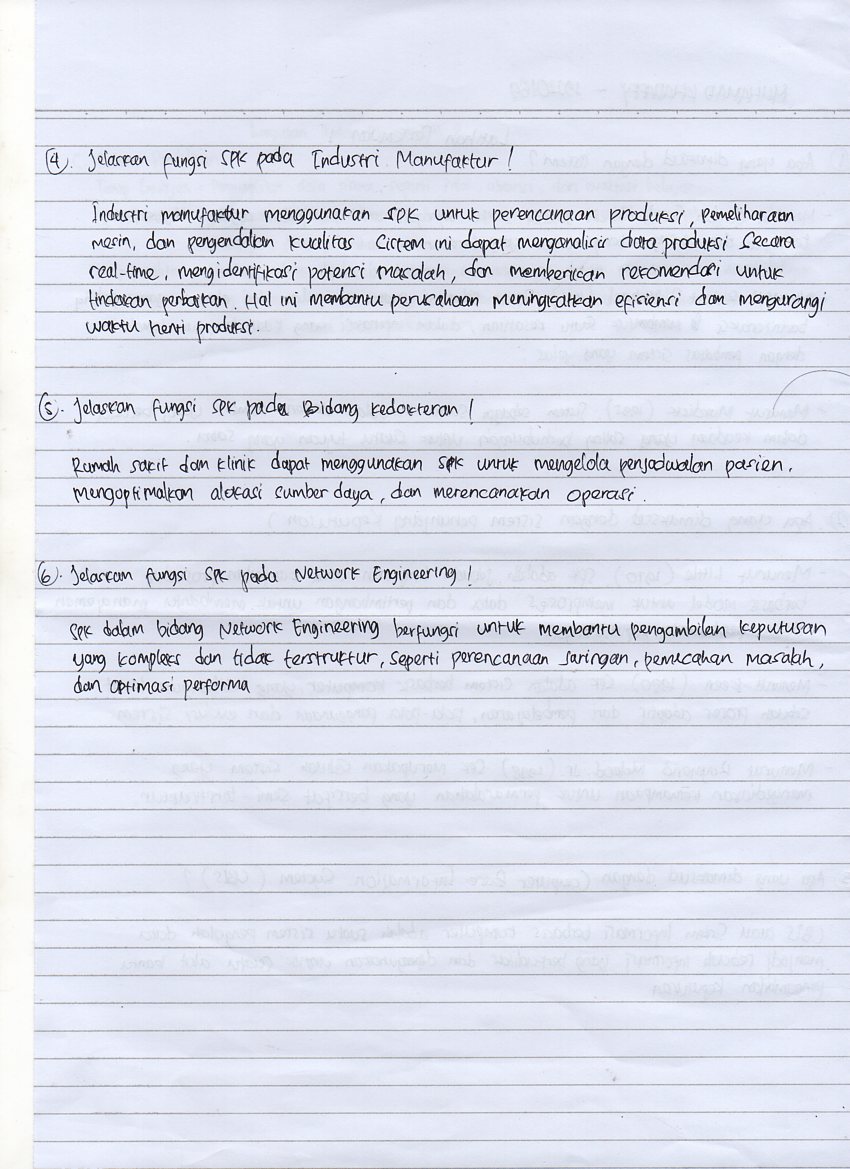 4. Jelaskan fungsi SPK pada Industri Manufaktur!
Industri manufaktur menggunakan SPK untuk perencanaan produksi, pemeliharaan
mesin, dan pengendalian kualitas Sistem ini dapat menganalisis data produksi secara
real-time, mengidentifikasi potensi masalah, dan memberikan rekomendasi untuk
tindakan perbaikan. Hal ini membantu perusahaan meningkatkan efisiensi dan mengurangi
waktu henti produksi.
5. Jelaskan fungsi SPK pada Bidang kedokteran!
Rumah sakit dan klinik dapat menggunakan SPK untuk mengelola penjadwalan pasien,
mengoptimalkan alokasi sumber daya, dan merencanakan operasi.
6. Jelaskan fungsi SPK pada Network Engineering!
SPK dalam bidang Network Engineering berfungsi untuk membantu pengambilan keputusan
yang kompleks dan tidak terstruktur, seperti perencanaan jaringan, pemecahan masalah,
dan optimasi performa